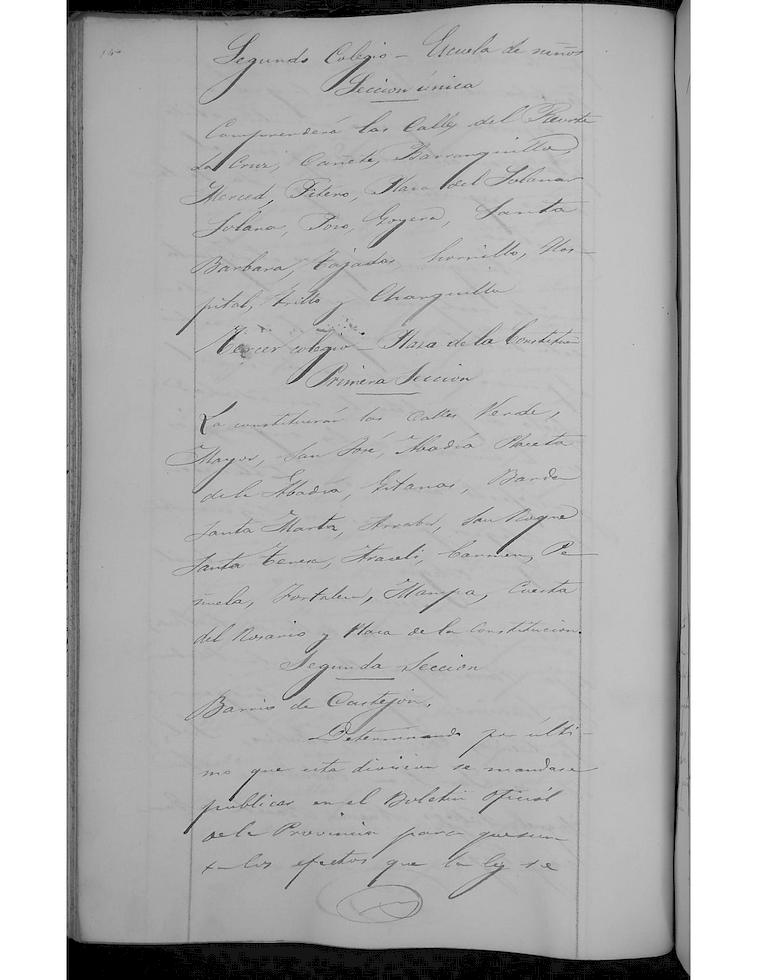 Segundo Colegio - Escuela de niños
Seccion única
Comprenderá las Calles del Puente
La Cruz, Cañete, Barranquillo,
Merced, Fitero, Plaza del Solanar
Solana, Pozo, Goyena, Santa
Barbara, Tajadas, hornillo, Hos-
pital, Trillo y Charquillo
Tercer colegio - Plaza de la Constitucion
Primera Seccion
La constituirán las Calles Verde,
Mayor, San José, Abadía Placeta
de la Abadía, Gitanas, Barda
Santa Marta, Arrabal, San Roque
Santa Teresa, Araceli, Carmen, Pe-
ñuela, Fortaleza, Mampa, Cuesta
del Rosario y Plaza de la Constitucion.
Segunda Seccion
Barrio de Castejón.
Determinando por últi-
mo que esta division se mandase
publicar en el Boletin Oficial
de la Provincia para que surta
los efectos que la ley se